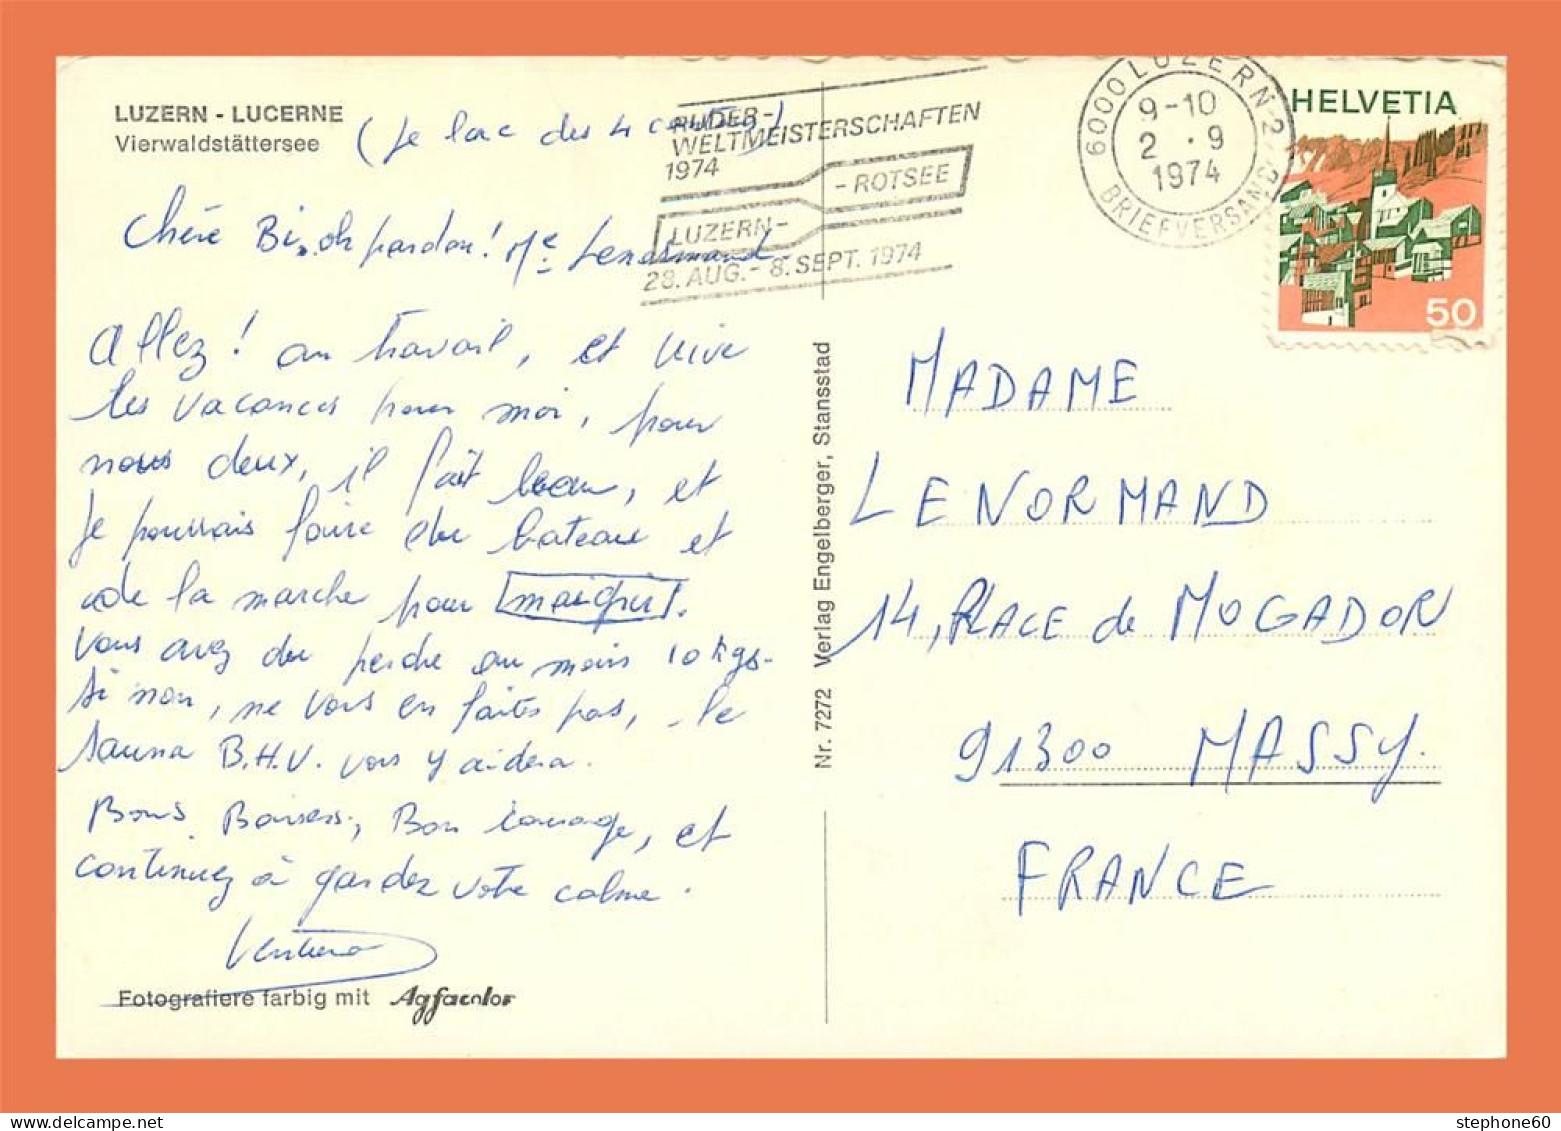 LUZERN - LUCERNE
Vierwaldstättersee
(le lac des 4 cantons)
RUDER-
WELTMEISTERSCHAFTEN
1974
- ROTSEE
LUZERN-
28. AUG. - 8. SEPT. 1974
6000 LUZERN 2
9-10
2.9
1974
BRIEFVERSAND
HELVETIA
50
Chère Bi, oh pardon! Me Lenormand
Allez! au travail, et vive
les vacances pour moi, pour
nous deux, il fait beau, et
je pourrais faire du bateau et
de la marche pour maigrir.
Vous avez du perdre au moins 10 kgs.
Si non, ne vous en faites pas, le
sauna B.H.V. vous y aidera.
Bons Baisers, Bon courage, et
continuez à garder votre calme.
Fotografiere farbig mit Agfacolor
Nr. 7272 Verlag Engelberger, Stansstad
MADAME
LENORMAND
14, PLACE de MOGADOR
91300 MASSY.
FRANCE
stephone60